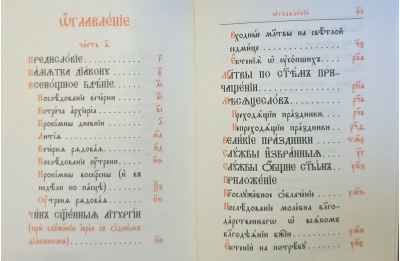 Ѡ҆главле́нїе
часть а҃.
Предисло́вїе
Па́мѧтка дїа́кону
Всено́щное бдѣ́нїе
Послѣ́дованїе вече́рни
Встрѣ́ча а҆рхїере́ѧ
Проки́мны дневні́и
Лїті́ѧ
Вече́рнѧ рѧдова́ѧ
Послѣ́дованїе ᲂу҆́трени
Проки́мны воскре́сны (и҆ в
недѣ́ли по па́сцѣ)
Оу҆́тренѧ рѧдова́ѧ
Чи́нъ сщ҃е́нныѧ лїтꙋргі́и
(при слꙋже́нїи і҆ере́а съ є҆ди́нѣмъ
дїа́кономъ)
ѡ҆главле́нїе
Вхѡ́дныѧ мл҃твы на свѣ́тлой
седми́цѣ
Є҆ктенїѧ̀ ѡ҆ ᲂу҆со́пшихъ
Мл҃твы по ст҃ѣ́мъ при-
чаще́нїи
Мѣсѧцесло́въ
Преходѧ́щїи пра́здники
Непреходѧ́щїи пра́здники
Вели́кїе пра́здники
Слꙋ́жбы и҆збра́нныѧ
Слꙋ́жбы ѻ҆́бщие ст҃ы̑мъ
Приложе́нїе
Бг҃ослꙋже́бное ѡ҆блаче́нїе
Послѣ́дованїе моле́бна бл҃го-
да́рственнагѡ ѡ҆ всѧ́комъ
бл҃годѣѧ́нїи бж҃їи
Є҆ктенїи̑ на потре́бꙋ